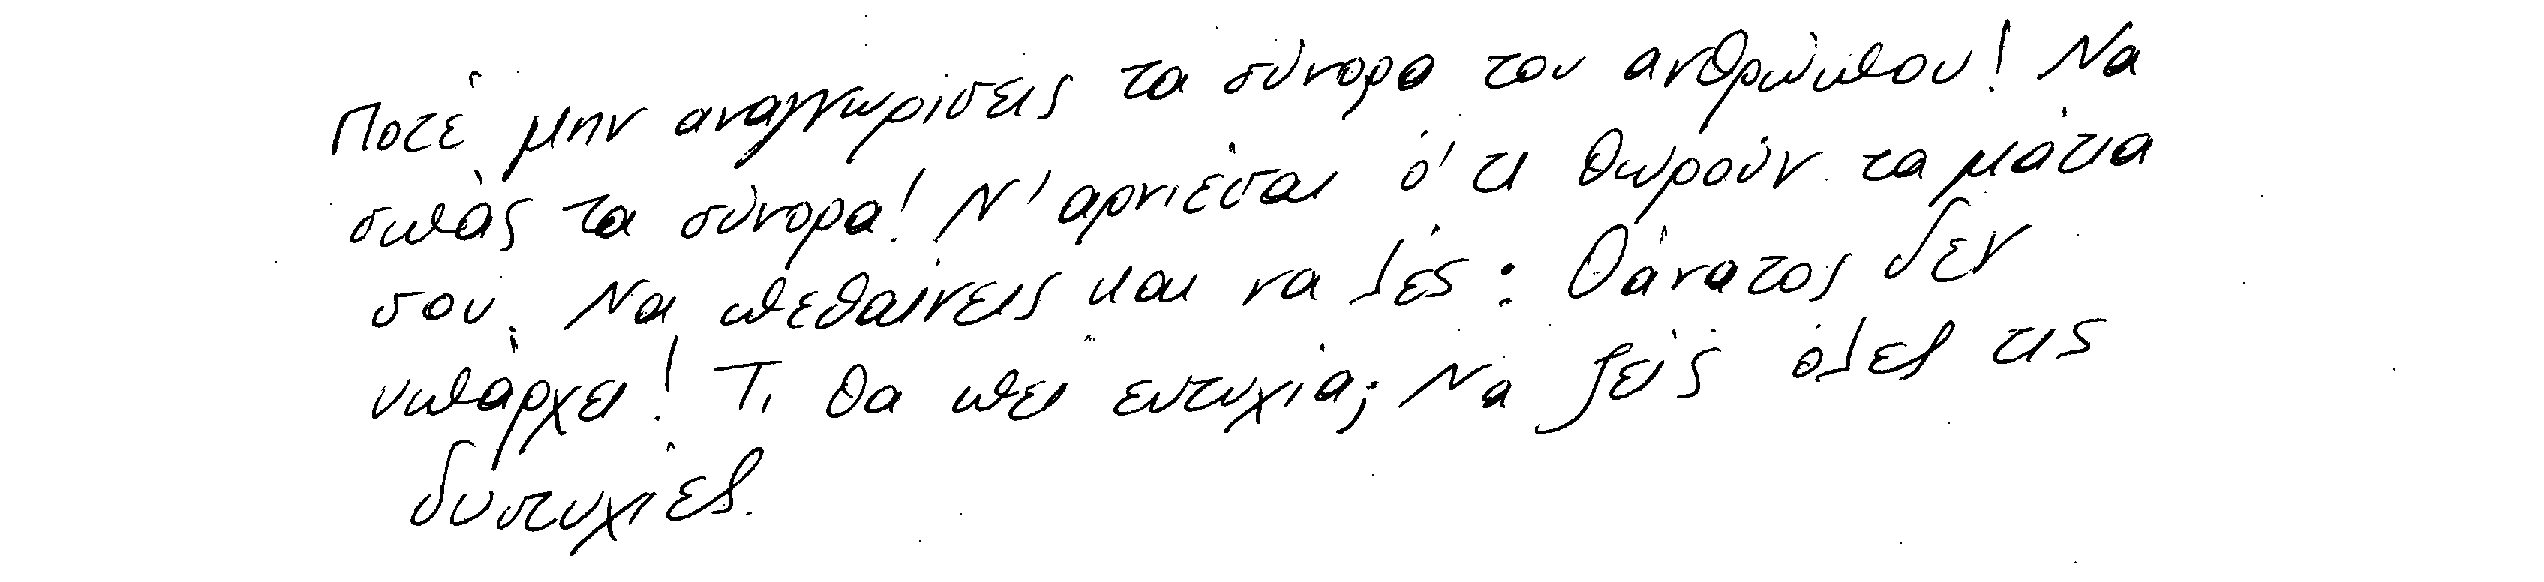 Ποτέ μην αναγνωρίσεις τα σύνορα του ανθρώπου! Να
σπάς τα σύνορα! Ν' αρνιέσαι ό'τι θωρούν τα μάτια
σου. Να πεθαίνεις και να λές: Θάνατος δεν
υπάρχει! Τι θα πει ευτυχία; Να ζείς όλες τις
δυστυχίες.